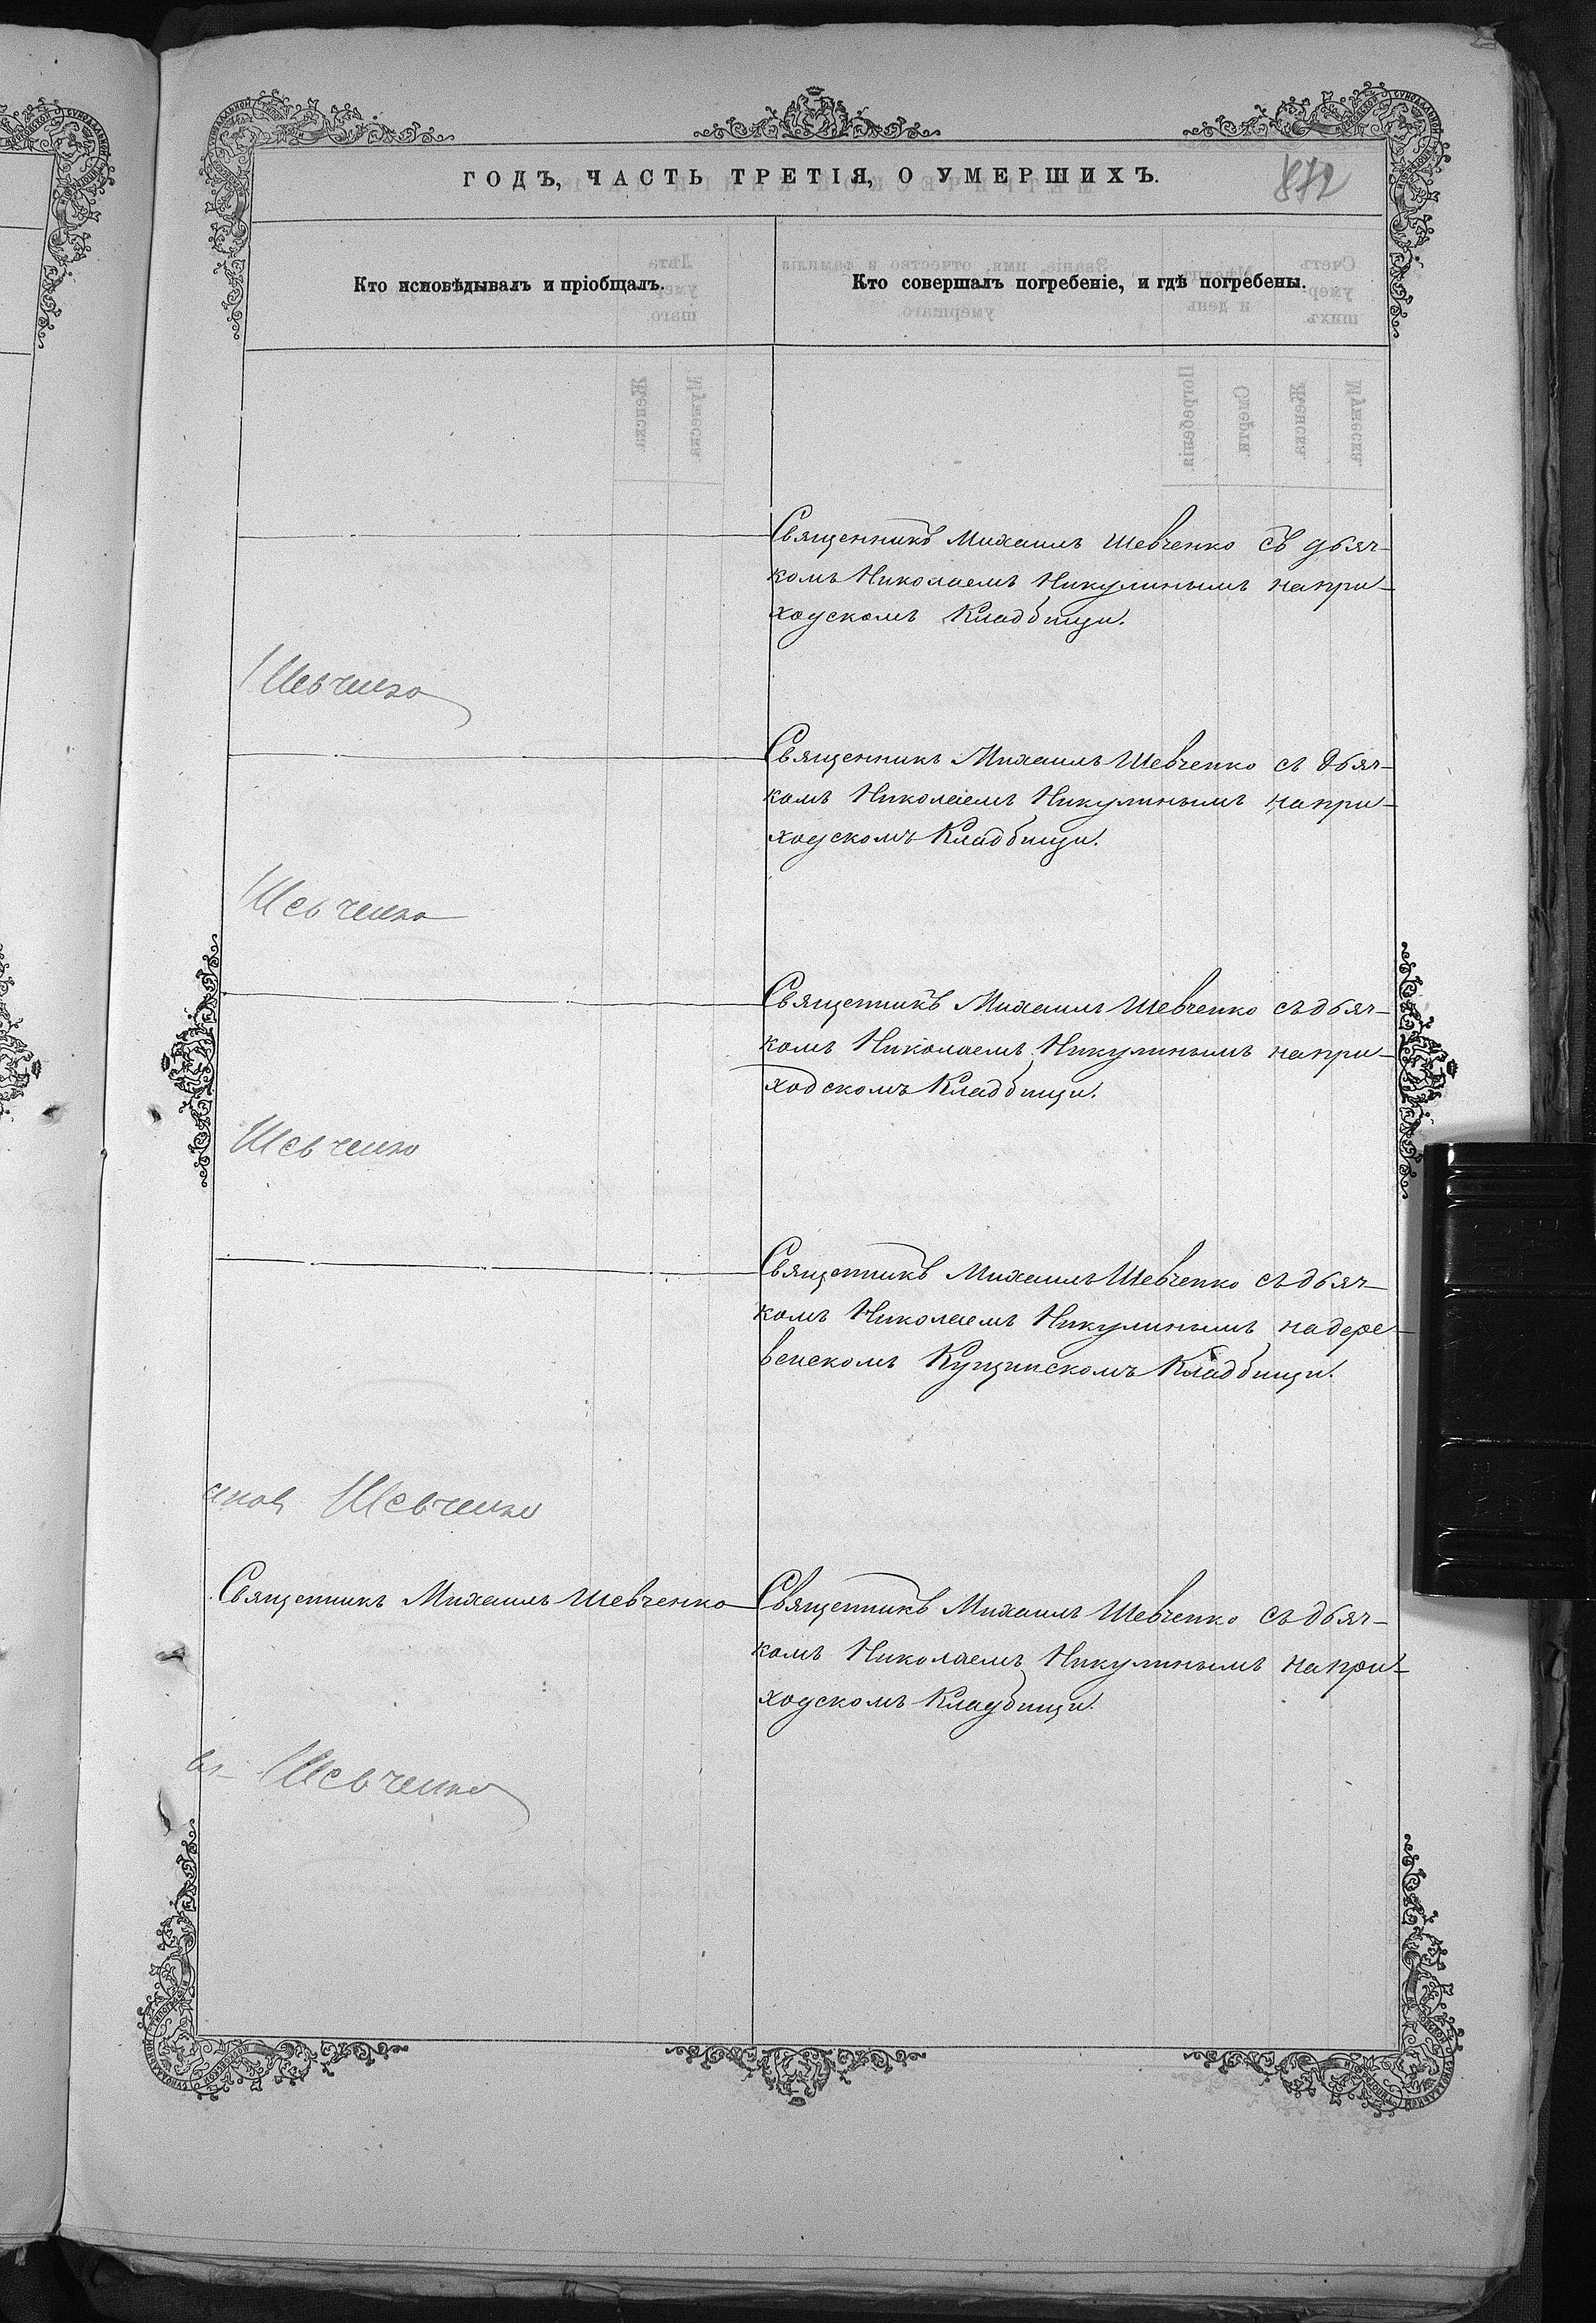 ГОДЪ, ЧАСТЬ ТРЕТІЯ, О УМЕРШИХЪ.
872
Кто исповѣдывалъ и пріобщалъ.
Кто совершалъ погребеніе, и гдѣ погребены.
Священникъ Михаилъ Шевченко съ дьяч-
комъ Николаемъ Никулинымъ на при-
ходскомъ Кладбищи.
Шевченко
Священникъ Михаилъ Шевченко съ дьяч-
комъ Николаемъ Никулинымъ на при-
ходскомъ Кладбищи.
Шевченко
Священникъ Михаилъ Шевченко съ дьяч-
комъ Николаемъ Никулинымъ на при-
ходскомъ Кладбищи.
Шевченко
Священникъ Михаилъ Шевченко съ дьяч-
комъ Николаемъ Никулинымъ на дере-
венскомъ Кладбищи.
Шевченко
Священникъ Михаилъ Шевченко
Священникъ Михаилъ Шевченко съ дьяч-
комъ Николаемъ Никулинымъ на при-
ходскомъ Кладбищи.
Шевченко